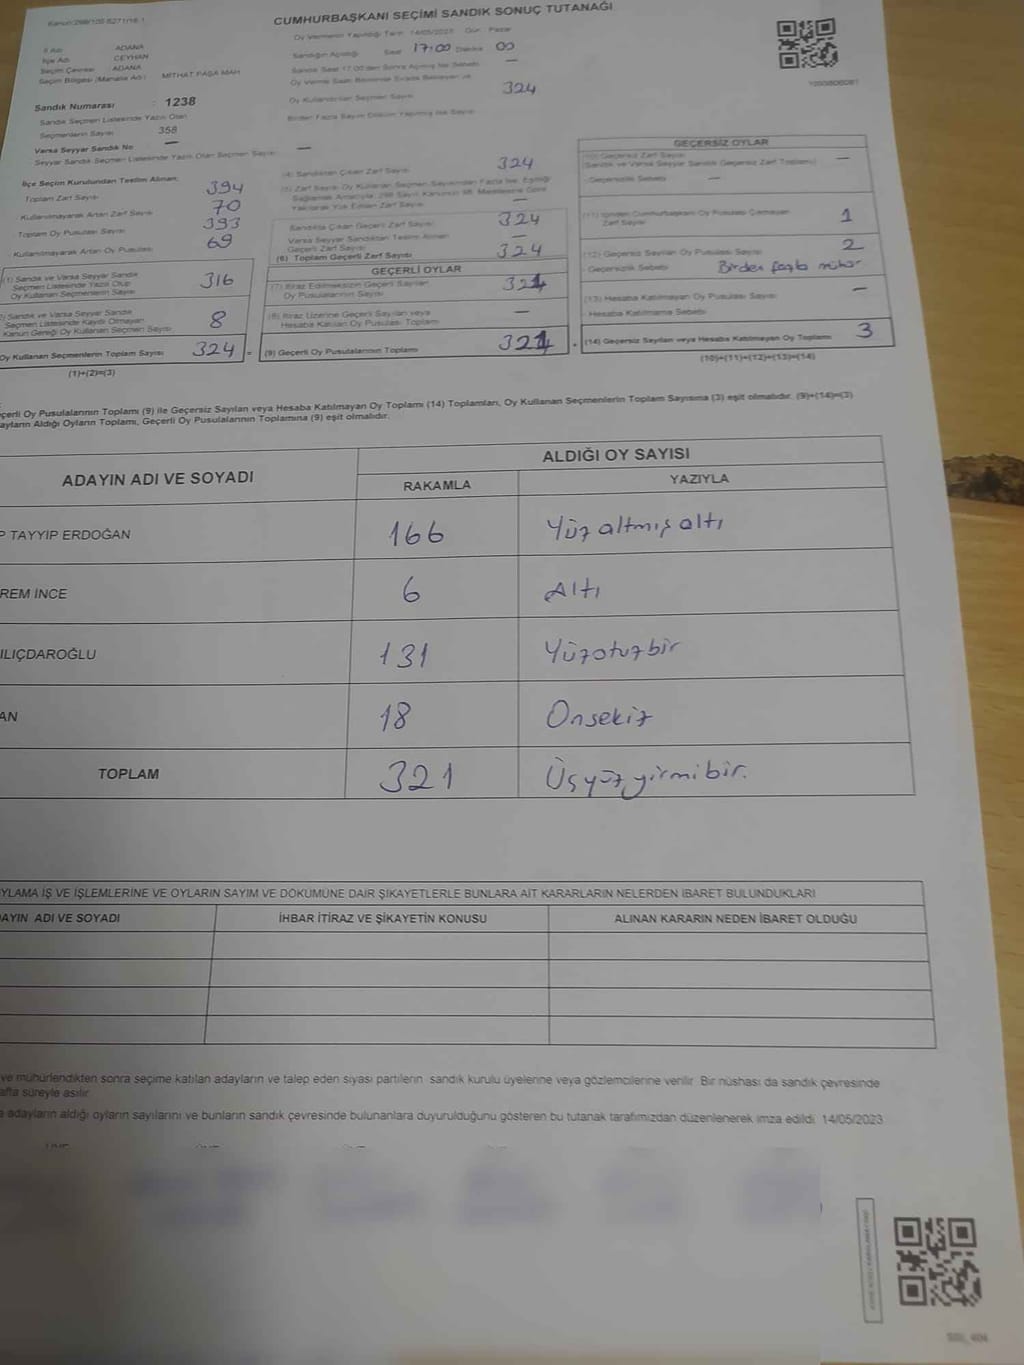 Kanun:298/105 6271/16.1
CUMHURBAŞKANI SEÇİMİ SANDIK SONUÇ TUTANAĞI
İl Adı : ADANA
İlçe Adı : CEYHAN
Seçim Çevresi : ADANA
Seçim Bölgesi (Mahalle Adı) : MİTHAT PAŞA MAH
Sandık Numarası : 1238
Sandık Seçmen Listesinde Yazılı Olan
Seçmenlerin Sayısı : 358
Varsa Seyyar Sandık No —
Seyyar Sandık Seçmen Listesinde Yazılı Olan Seçmen Sayısı : —
Oy Vermenin Yapıldığı Tarih : 14/05/2023 Gün : Pazar
Sandığın Açıldığı Saat 17:00 Dakika 00
Sandık Saat 17.00'den Sonra Açılmış İse Sebebi —
Oy Kullandırılan Seçmen Sayısı 324
Birden Fazla Sayım Döküm Yapılmış İse Sayısı
İlçe Seçim Kurulundan Teslim Alınan;
Toplam Zarf Sayısı 394
Kullanılmayarak Artan Zarf Sayısı 70
Toplam Oy Pusulası Sayısı 393
Kullanılmayarak Artan Oy Pusulası 69
(1) Sandık ve Varsa Seyyar Sandık
Seçmen Listesinde Yazılı Olup
Oy Kullanan Seçmenlerin Sayısı 316
Sandık ve Varsa Seyyar Sandık
Seçmen Listesinde Kayıtlı Olmayan
Kanun Gereği Oy Kullanan Seçmen Sayısı 8
Oy Kullanan Seçmenlerin Toplam Sayısı 324
(1)+(2)=(3)
(4) Sandıktan Çıkan Zarf Sayısı 324
(5) Zarf Sayısı Oy Kullanan Seçmen Sayısından Fazla İse, Eşitliği
Sağlamak Amacıyla; 298 Sayılı Kanunun 98. Maddesine Göre
Yakılarak Yok Edilen Zarf Sayısı —
Sandıkta Çıkan Geçerli Zarf Sayısı 324
Varsa Seyyar Sandıktan Teslim Alınan
Geçerli Zarf Sayısı —
(6) Toplam Geçerli Zarf Sayısı 324
GEÇERLİ OYLAR
(7) İtiraz Edilmeksizin Geçerli Sayılan
Oy Pusulalarının Sayısı 321
(8) İtiraz Üzerine Geçerli Sayılan veya
Hesaba Katılan Oy Pusulası Toplamı —
(9) Geçerli Oy Pusulalarının Toplamı 321
GEÇERSİZ OYLAR
(10) Geçersiz Zarf Sayısı
(Sandık ve Varsa Seyyar Sandık Geçersiz Zarf Toplamı) —
Geçersizlik Sebebi —
(11) İçinden Cumhurbaşkanı Oy Pusulası Çıkmayan
Zarf Sayısı 1
(12) Geçersiz Sayılan Oy Pusulası Sayısı 2
Geçersizlik Sebebi : Birden fazla mühür
(13) Hesaba Katılmayan Oy Pusulası Sayısı —
Hesaba Katılmama Sebebi
(14) Geçersiz Sayılan veya Hesaba Katılmayan Oy Toplamı 3
(10)+(11)+(12)+(13)=(14)
çerli Oy Pusulalarının Toplamı (9) ile Geçersiz Sayılan veya Hesaba Katılmayan Oy Toplamı (14) Toplamları, Oy Kullanan Seçmenlerin Toplam Sayısına (3) eşit olmalıdır. (9)+(14)=(3)
ayların Aldığı Oyların Toplamı, Geçerli Oy Pusulalarının Toplamına (9) eşit olmalıdır.
ADAYIN ADI VE SOYADI
ALDIĞI OY SAYISI
RAKAMLA YAZIYLA
P TAYYIP ERDOĞAN 166 Yüz altmış altı
REM İNCE 6 Altı
ILIÇDAROĞLU 131 Yüzotuzbir
AN 18 Onsekiz
TOPLAM 321 Üçyüzyirmibir.
YLAMA İŞ VE İŞLEMLERİNE VE OYLARIN SAYIM VE DÖKÜMÜNE DAİR ŞİKAYETLERLE BUNLARA AİT KARARLARIN NELERDEN İBARET BULUNDUKLARI
AYIN ADI VE SOYADI İHBAR İTİRAZ VE ŞİKAYETİN KONUSU ALINAN KARARIN NEDEN İBARET OLDUĞU
ve mühürlendikten sonra seçime katılan adayların ve talep eden siyasi partilerin sandık kurulu üyelerine veya gözlemcilerine verilir. Bir nüshası da sandık çevresinde
afta süreyle asılır.
a adayların aldığı oyların sayılarını ve bunların sandık çevresinde bulunanlara duyurulduğunu gösteren bu tutanak tarafımızdan düzenlenerek imza edildi. 14/05/2023